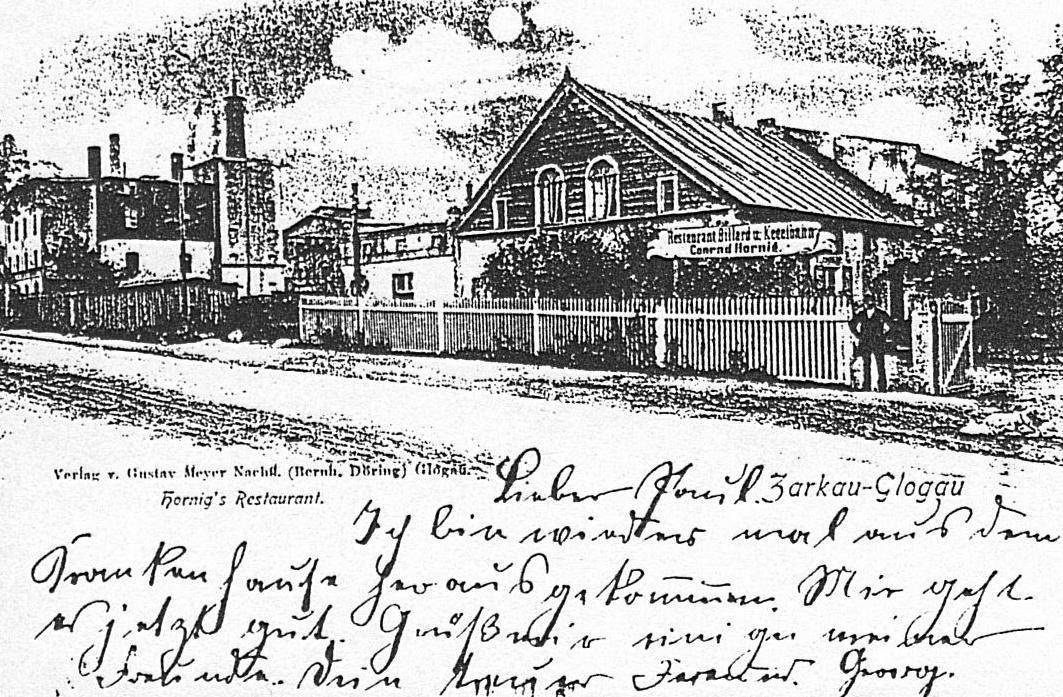 Restaurant Billard u. Kegelbahn
Conrad Hornig.
Verlag v. Gustav Meyer Nachfl. (Bernh. Döring) Glogau.
Hornig's Restaurant.
Zarkau-Glogau
Lieber Paul.
Ich bin wieder mal aus dem
Krankenhause herausgekommen. Mir geht
es jetzt gut. Grüß mir einige meiner
Freunde. Dein treuer Freund. Georg.